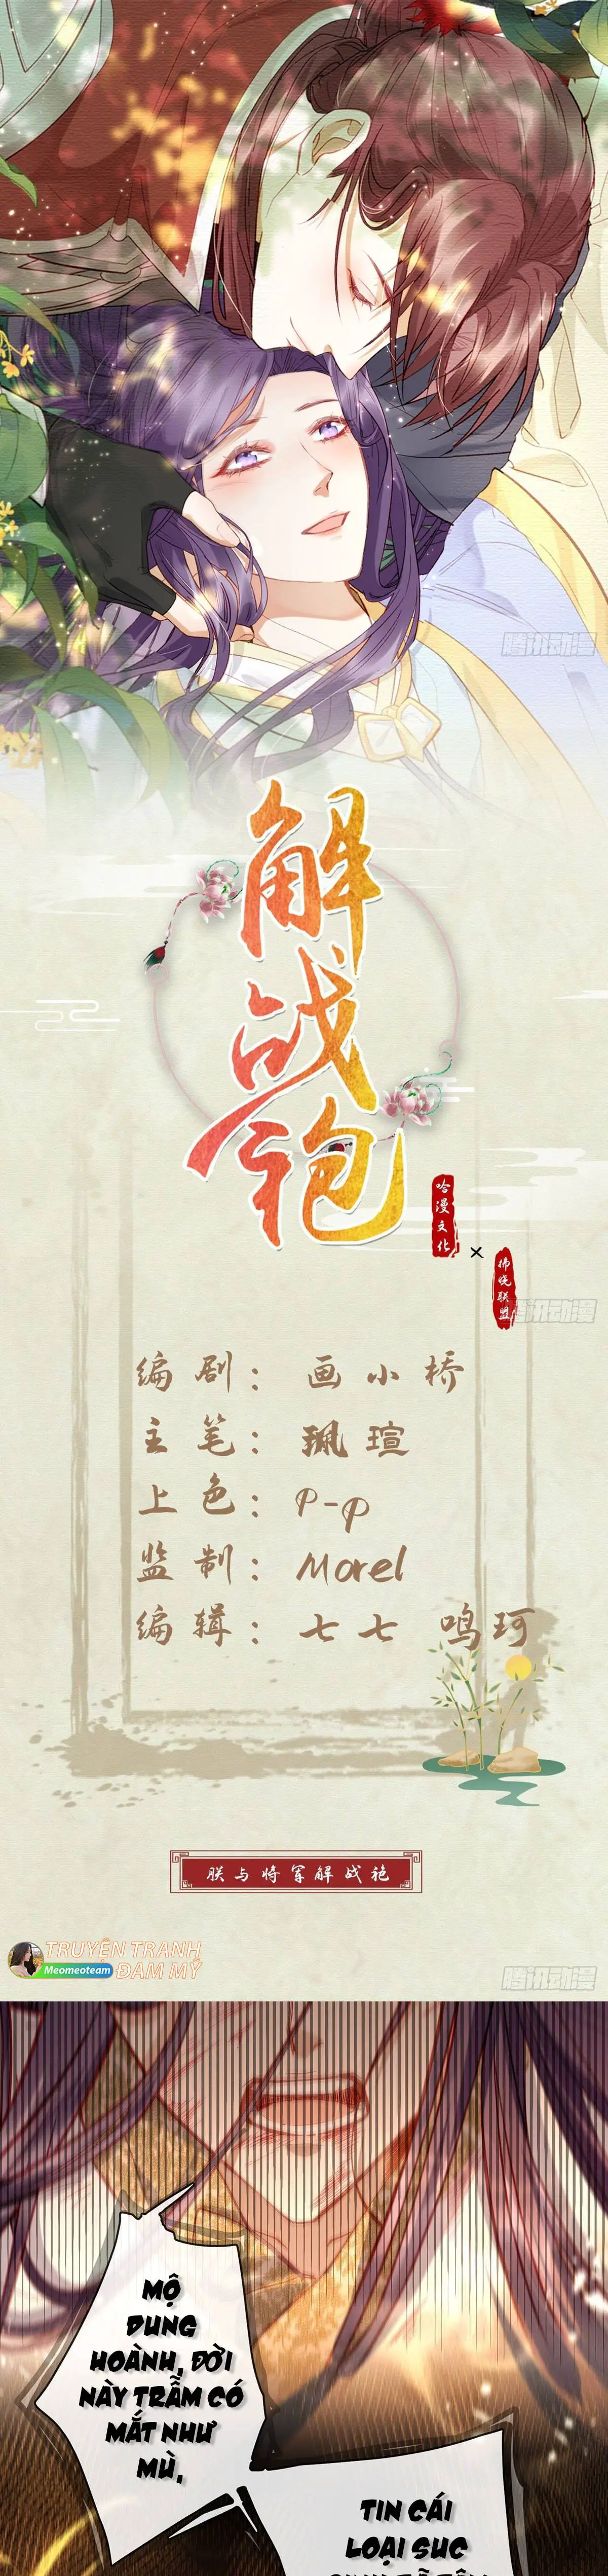 腾讯动漫
解战袍
哈漫文化
×
拂晓联盟
腾讯动漫
编剧：画小桥
主笔：珮瑄
上色：P-P
监制：Morel
编辑：七七 鸣珂
朕与将军解战袍
TRUYỆN TRANH
ĐAM MỸ
Meomeoteam
腾讯动漫
MỘ
DUNG
HOÀNH, ĐỜI
NÀY TRẪM CÓ
MẮT NHƯ
MÙ,
TIN CÁI
LOẠI SÚC